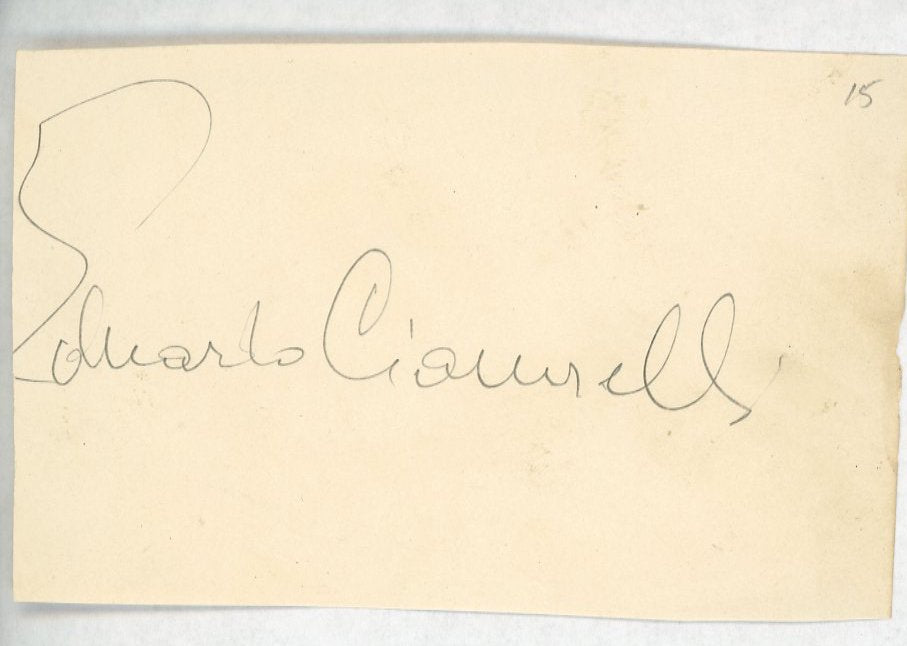 15
Eduardo Ciannelli